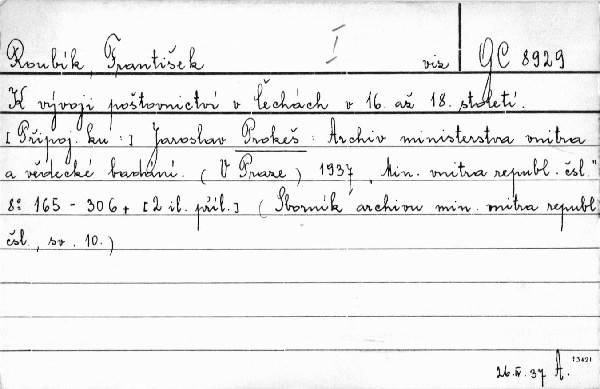 Roubík, František I viz GC 8929
K vývoji poštovnictví v Čechách v 16. až 18. století.
[Připoj. ku :] Jaroslav Prokeš: Archiv ministerstva vnitra
a vědecké badání. (V Praze) 1937 „Min. vnitra republ. čsl."
8° 165 - 306 + [2 il. příl.] (Sborník archivu min. vnitra republ.
čsl., sv. 10.)
26.IV.37 A. 13421